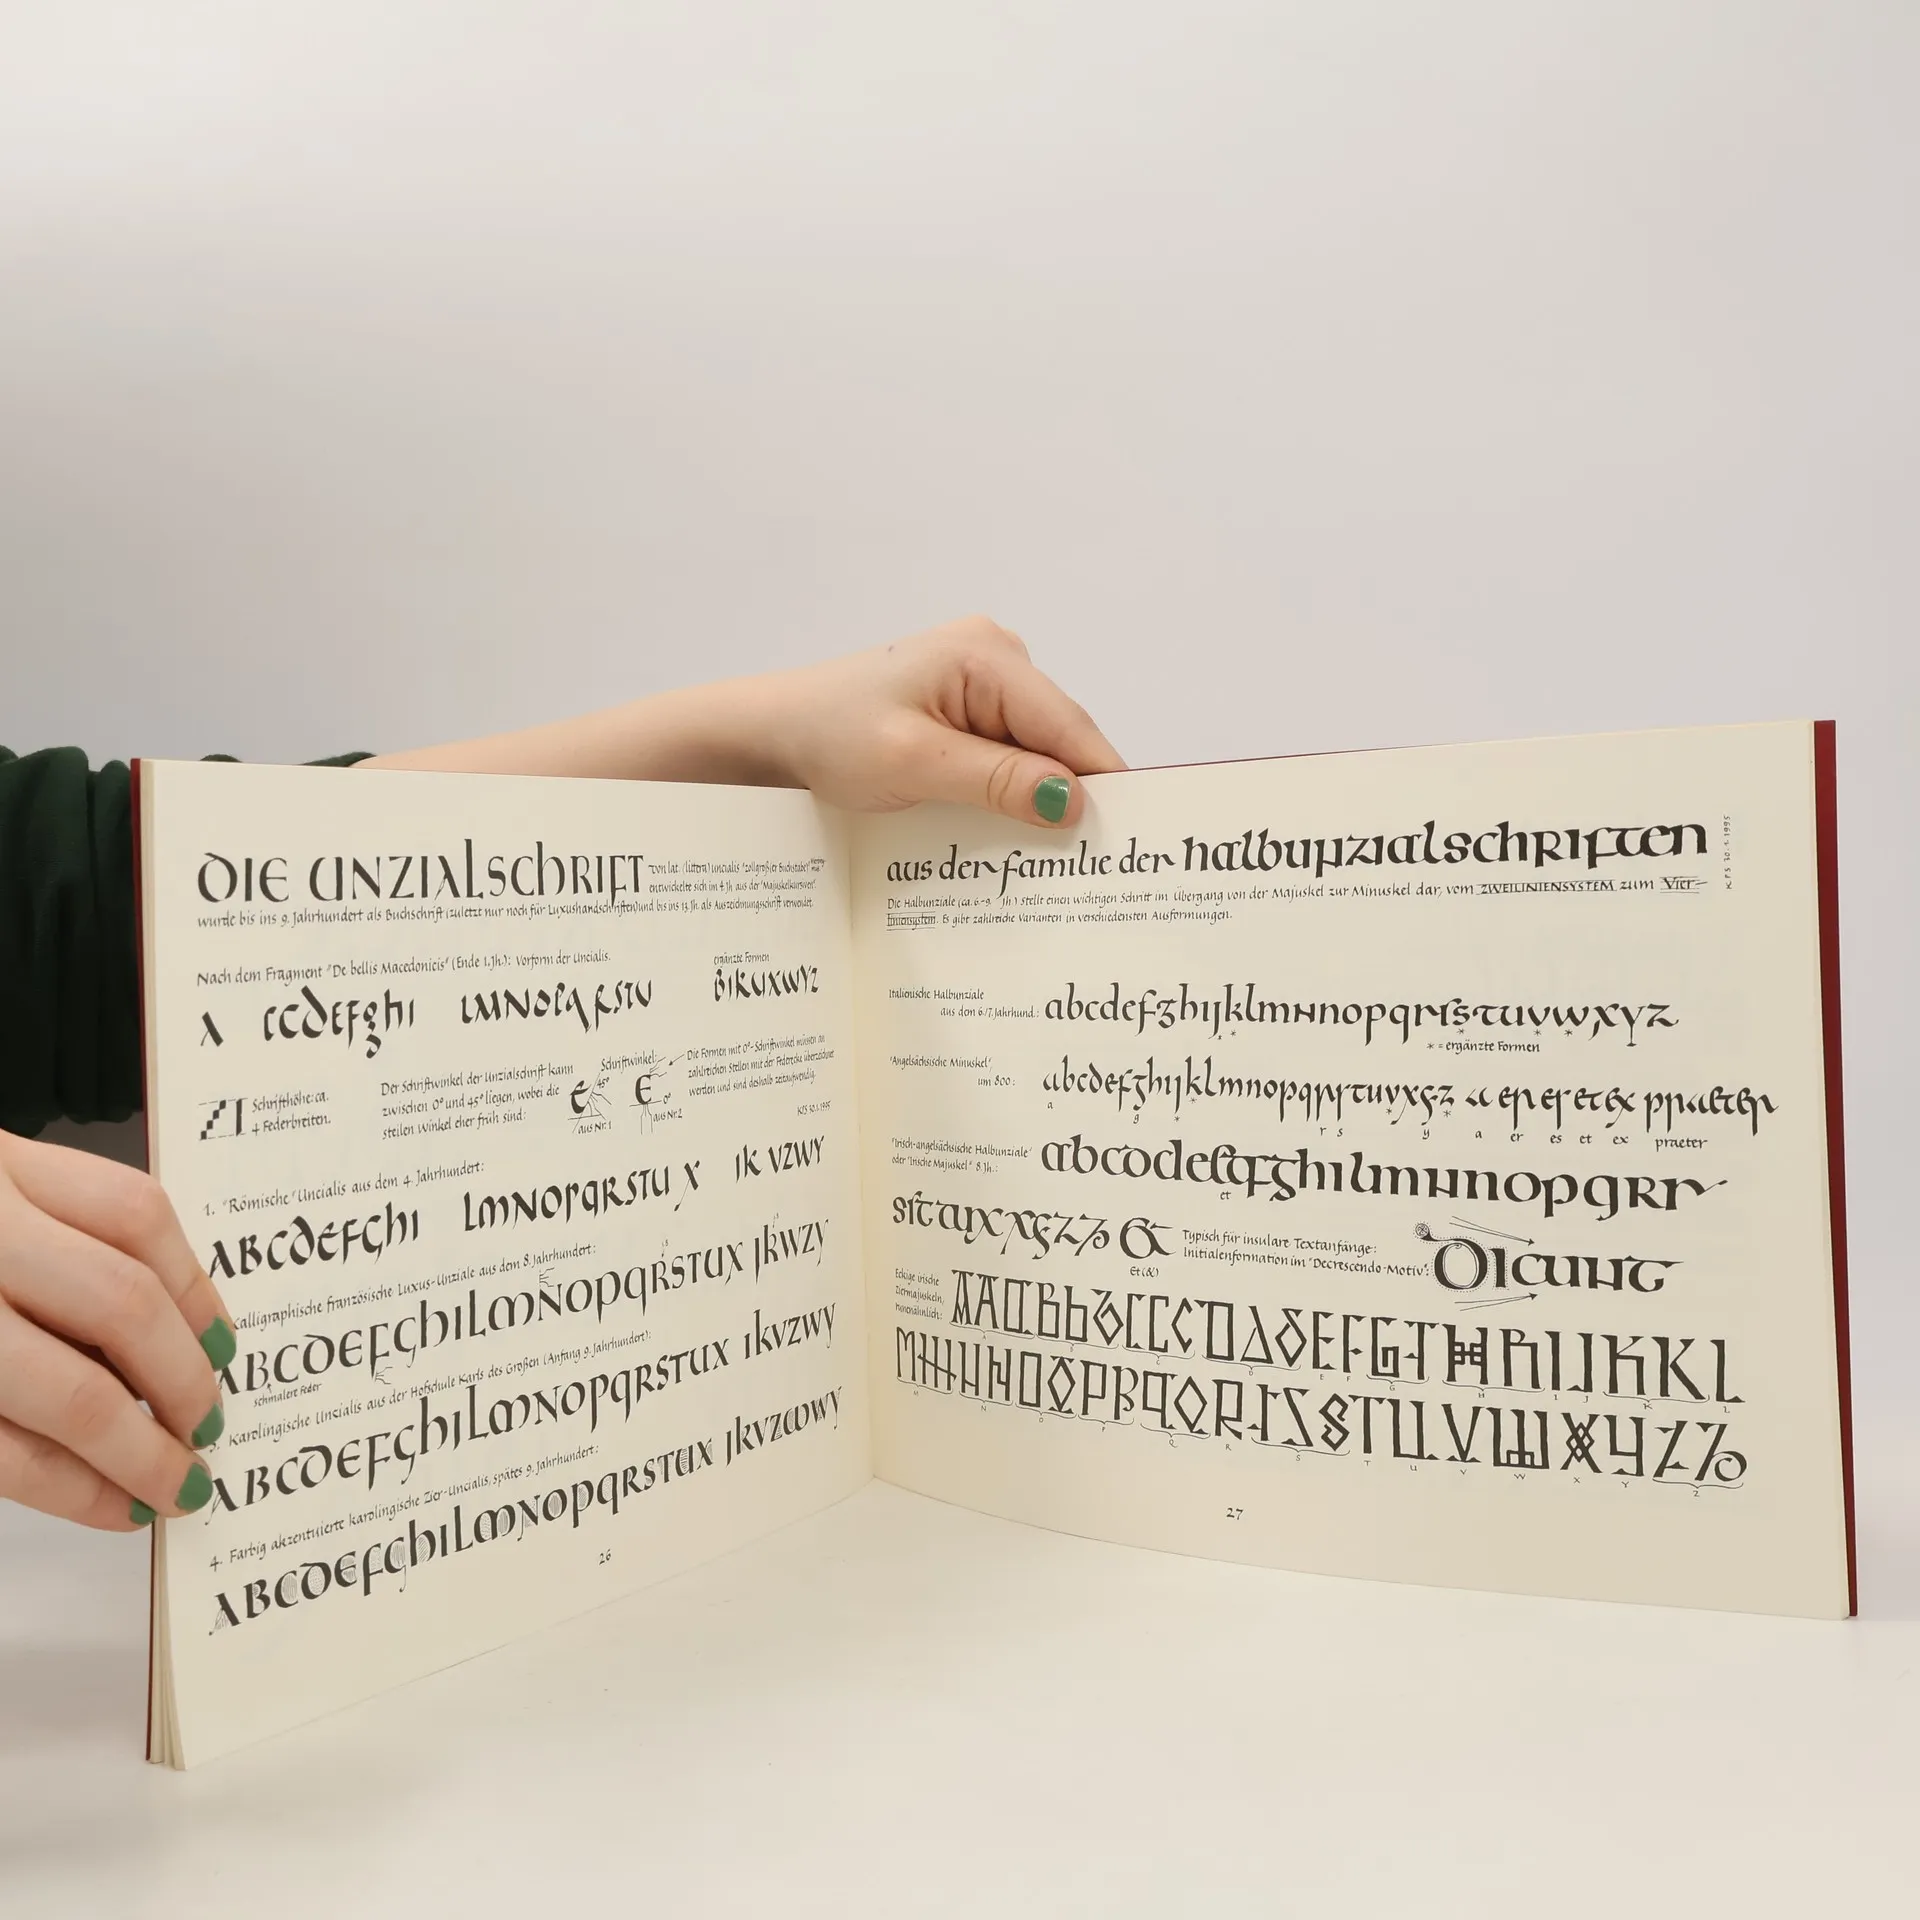 DIE UNZIALSCHRIFT von lat. (littera) uncialis "zollgroßer Buchstabe"
entwickelte sich im 4. Jh. aus der "Majuskelkursive".
wurde bis ins 9. Jahrhundert als Buchschrift (zuletzt nur noch für Luxushandschriften) und bis ins 13. Jh. als Auszeichnungsschrift verwendet.
Nach dem Fragment "De bellis Macedonicis" (Ende 1. Jh.): Vorform der Uncialis.
ergänzte Formen
BIKUXWYZ
Schrifthöhe: ca.
4 Federbreiten.
Der Schriftwinkel der Unzialschrift kann
zwischen 0° und 45° liegen, wobei die
steilen Winkel eher früh sind:
Schriftwinkel:
E 45°
aus Nr. 1
E 0°
aus Nr. 2
Die Formen mit 0°-Schriftwinkel müssen an
zahlreichen Stellen mit der Federecke überzeichnet
werden und sind deshalb zeitaufwendig.
KFS 30.1.1995
1. "Römische" Uncialis aus dem 4. Jahrhundert:
ABCDEFGHI LMNOPQRSTU X IK VZWY
kalligraphische französische Luxus-Unziale aus dem 8. Jahrhundert:
ABCDEFGHILMNOPQRSTUX JKWZY
schmalere Feder
3. Karolingische Uncialis aus der Hofschule Karls des Großen (Anfang 9. Jahrhundert):
ABCDEFGHILMNOPQRSTUX IKVZWY
4. Farbig akzentuierte karolingische Zier-Uncialis, spätes 9. Jahrhundert:
ABCDEFGHILMNOPQRSTUX JKVZWWY
26
aus der familie der halbunzialschriften
KFS 30.1.1995
Die Halbunziale (ca. 6.-9. Jh.) stellt einen wichtigen Schritt im Übergang von der Majuskel zur Minuskel dar, vom ZWEILINIENSYSTEM zum Vier-
liniensystem. Es gibt zahlreiche Varianten in verschiedensten Ausformungen.
Italienische Halbunziale
aus dem 6./7. Jahrhund.: abcdefghijklmnnopqrsstuvwxyz
* = ergänzte Formen
"Angelsächsische Minuskel",
um 800: abcdefghijklmnopqrstuvxyz a er es et ex praeter
a g r s y a er es et ex praeter
"Irisch-angelsächsische Halbunziale"
oder "Irische Majuskel" 8. Jh.: abcdefghilmnnopqrr
et
Et (&)
Typisch für insulare Textanfänge:
Initialenformation im "Decrescendo-Motiv":
DICUNT
Eckige irische
Ziermajuskeln,
AAABBBCCCDDDEFGTHHIJKKL
27